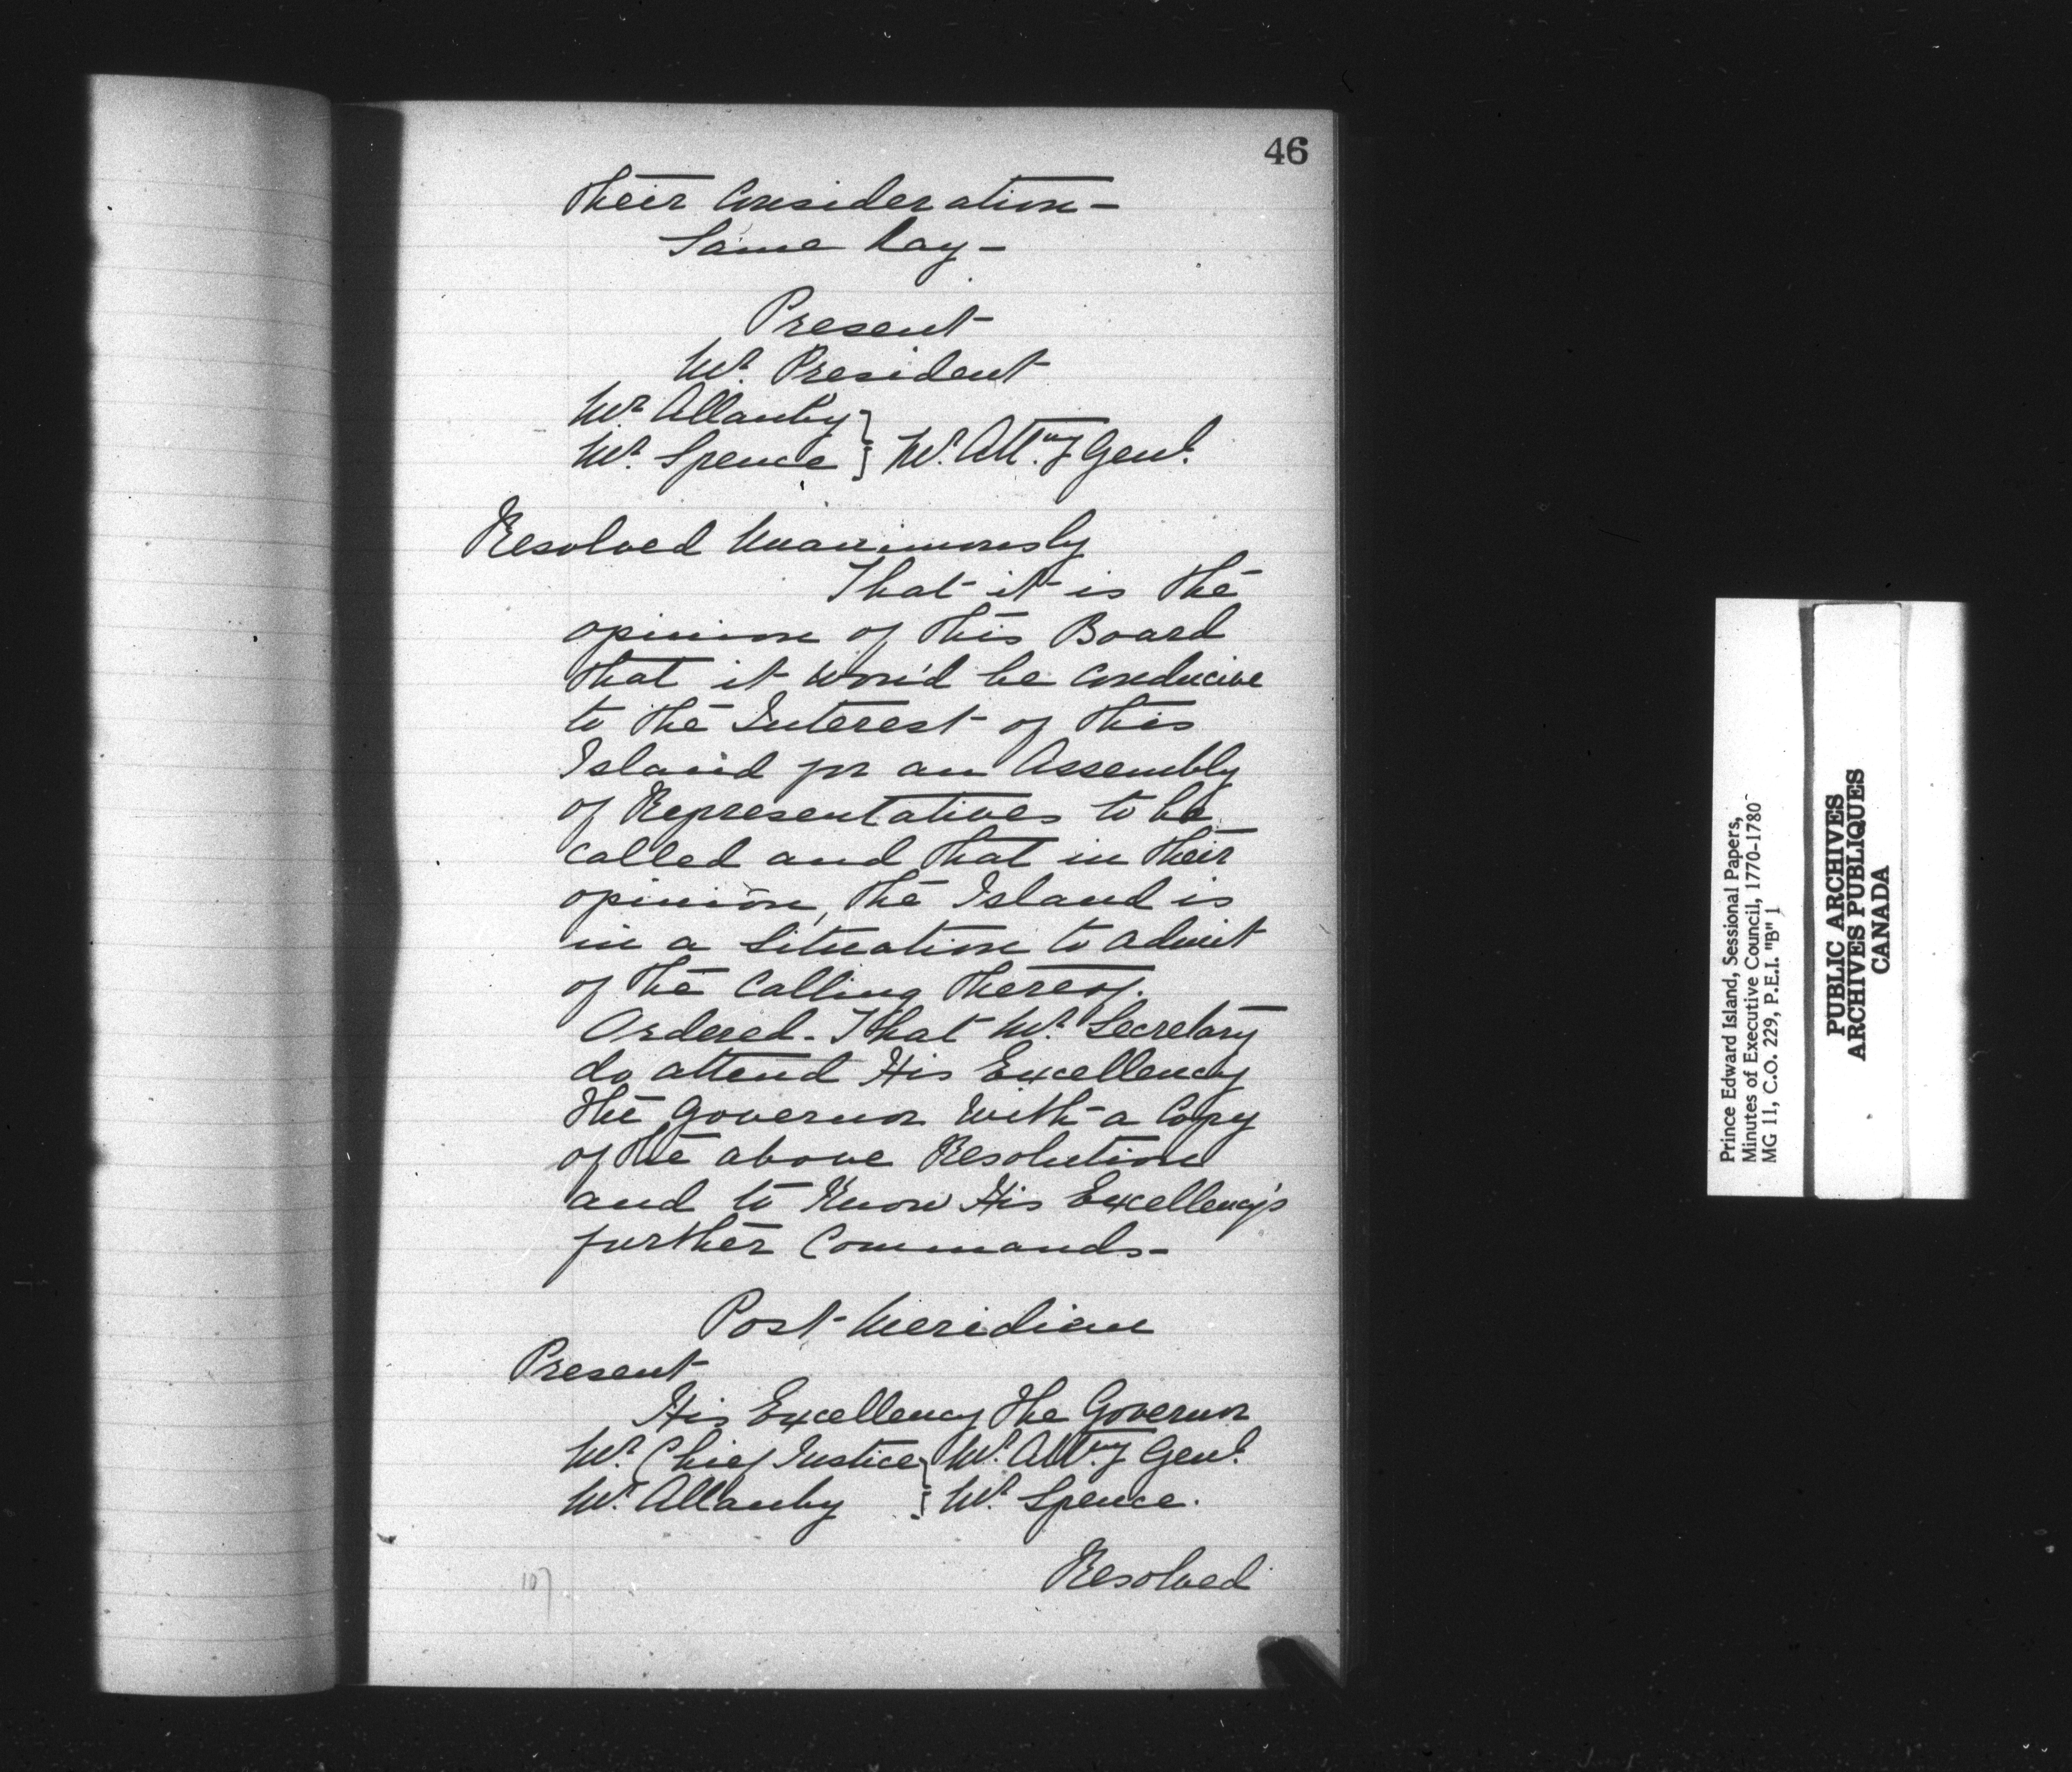 46
their Consideration -
Same Day -
Present
Mr. President
Mr. Allanby
Mr. Spence } Mr. Atty. Genl.
Resolved Unanimously
That it is the
opinion of this Board
that it wou'd be conducive
to the Interest of this
Island for an Assembly
of Representatives to be
called and that in their
opinion, the Island is
in a Situation to admit
of the Calling thereof.
Ordered - That Mr. Secretary
do attend His Excellency
the Governor with a Copy
of the above Resolution
and to Know His Excellency's
further Commands -
Post Meridian
Present
His Excellency the Governor
Mr. Chief Justice } Mr. Atty. Genl.
Mr. Allanby } Mr. Spence.
Resolved
107
Prince Edward Island, Sessional Papers,
Minutes of Executive Council, 1770-1780
MG 11, C.O. 229, P.E.I. "B" 1
PUBLIC ARCHIVES
ARCHIVES PUBLIQUES
CANADA